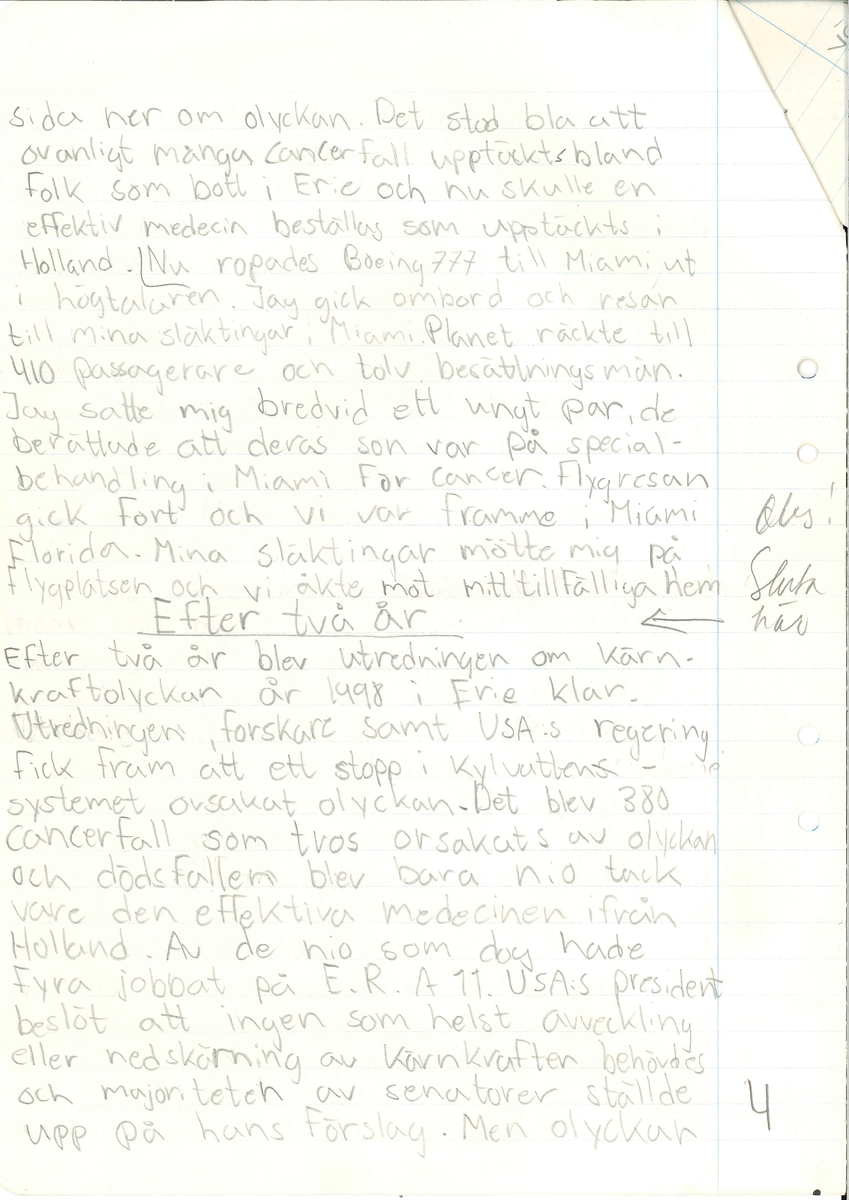 sida ner om olyckan. Det stod bla att
ovanligt många cancerfall upptäckts bland
folk som bott i Erie och nu skulle en
effektiv medecin beställas som upptäckts i
Holland. Nu ropades Boeing 777 till Miami ut
i högtalaren. Jag gick ombord och resan
till mina släktingar i Miami. Planet räckte till
410 passagerare och tolv besättningsmän.
Jag satte mig bredvid ett ungt par, de
berättade att deras son var på special-
behandling i Miami för cancer. Flygresan
gick fort och vi var framme i Miami
Obs!
Florida. Mina släktingar mötte mig på
flygplatsen och vi åkte mot mitt tillfälliga hem
Sluta
här
Efter två år
Efter två år blev utredningen om kärn-
kraftolyckan år 1998 i Erie klar.
Utredningen, forskare samt USA:s regering
fick fram att ett stopp i kylvattens-
systemet orsakat olyckan. Det blev 380
cancerfall som tros orsakats av olyckan
och dödsfallen blev bara nio tack
vare den effektiva medecinen ifrån
Holland. Av de nio som dog hade
fyra jobbat på E.R.A 11. USA:s president
beslöt att ingen som helst avveckling
eller nedskärning av kärnkraften behövdes
och majoriteten av senatorer ställde
upp på hans förslag. Men olyckan
4